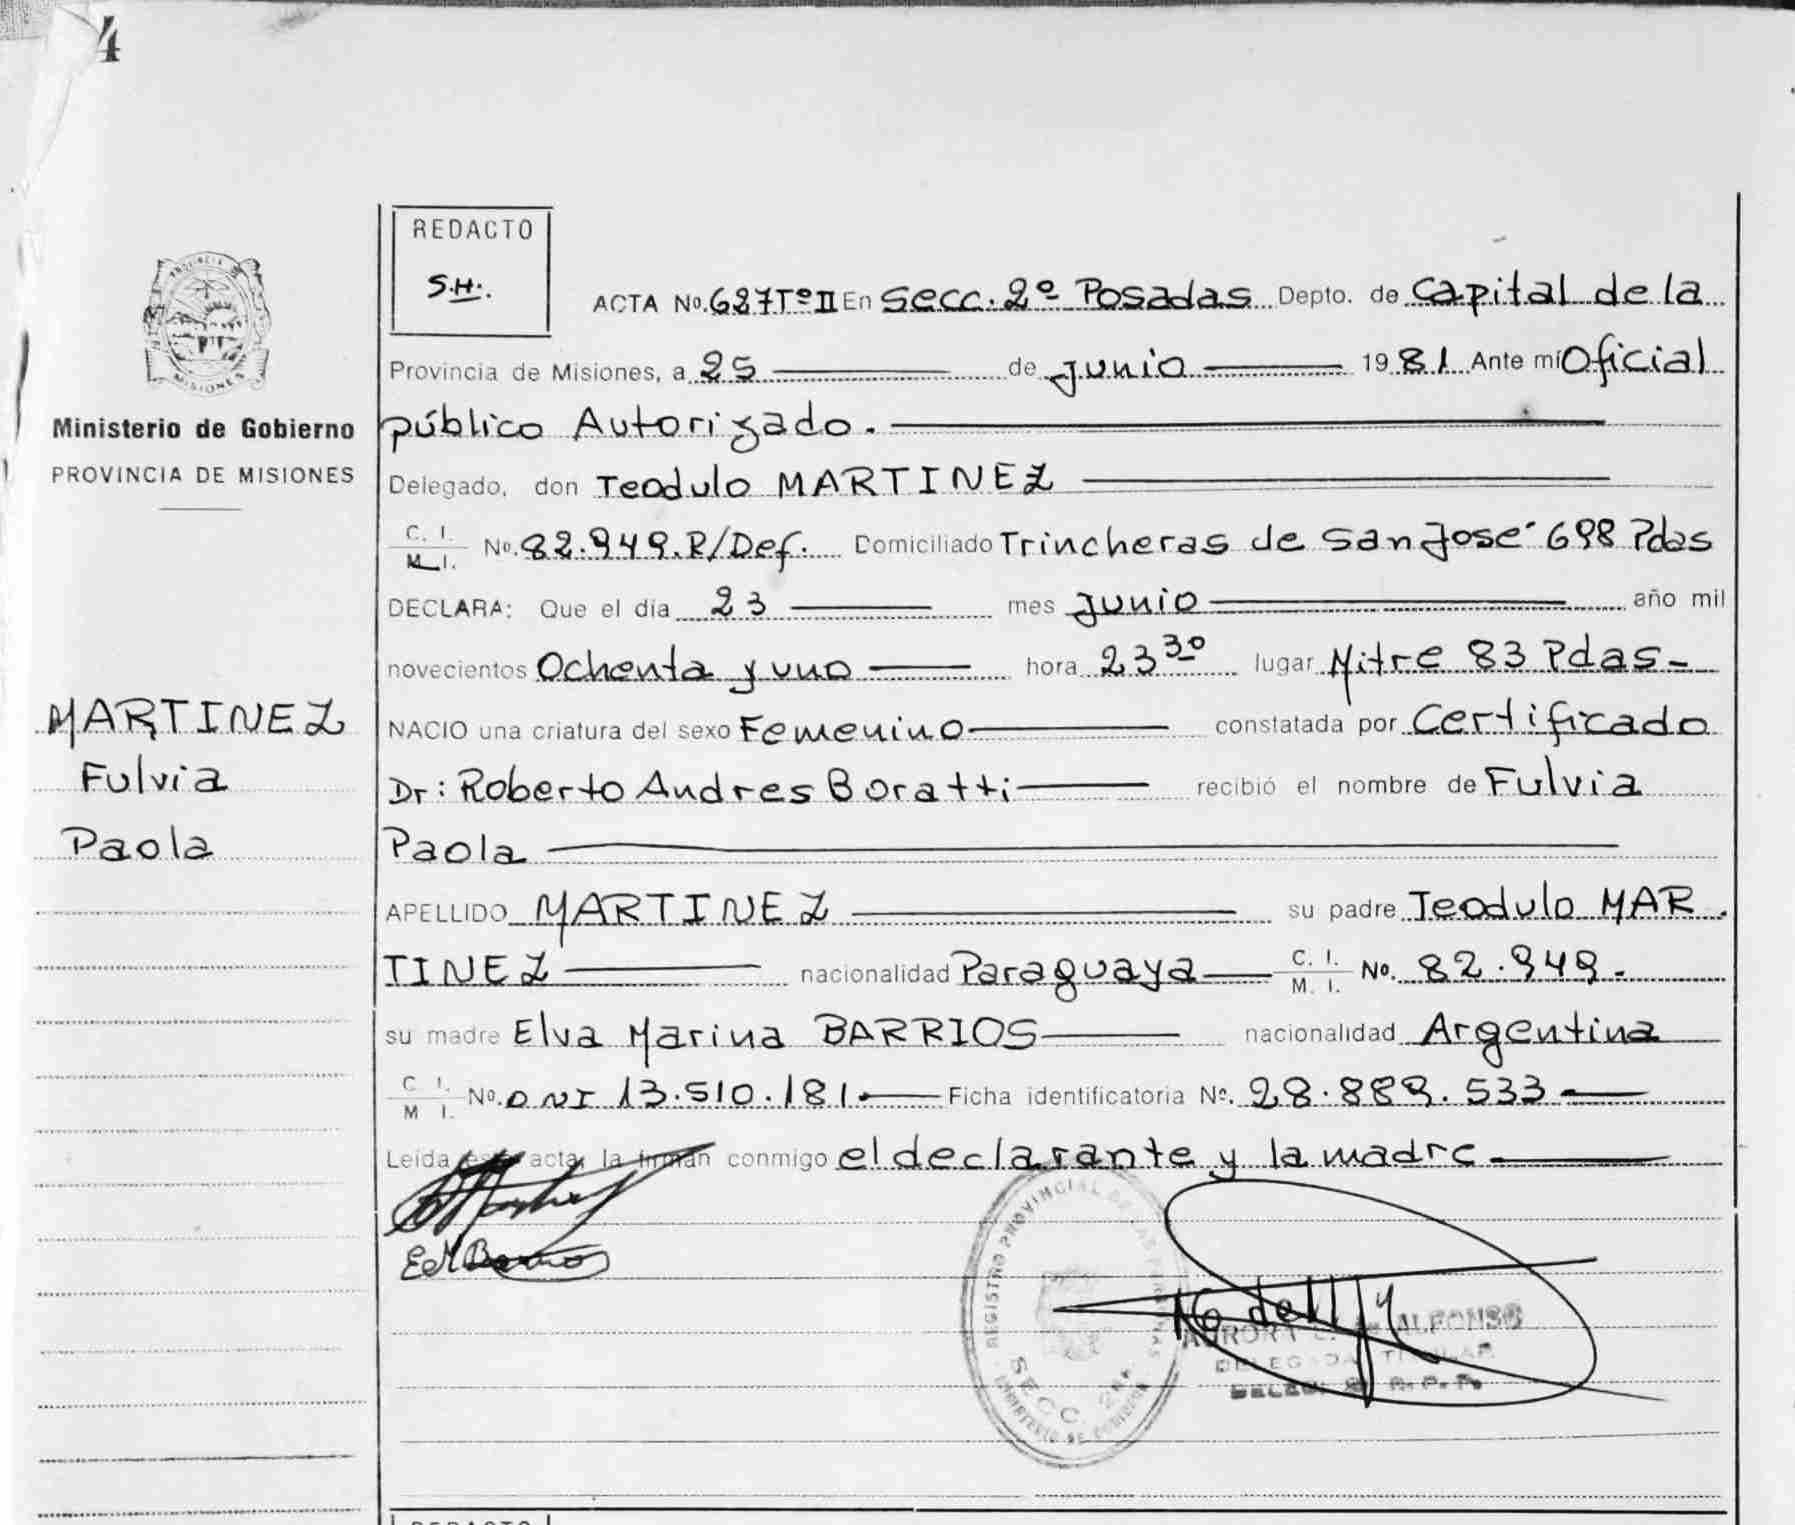 4
REDACTO
S.H.
ACTA No. 687 Tº II En Secc. 2º Posadas Depto. de Capital de la
Provincia de Misiones, a 25 de junio 1981 Ante mi Oficial
público Autorizado.
Delegado, don Teodulo MARTINEZ
C. I.
M. I. No. 82.949.P/Def. Domiciliado Trincheras de San José 698 Pdas
DECLARA: Que el día 23 mes junio año mil
novecientos Ochenta y uno hora 23 30 lugar Mitre 83 Pdas-
NACIO una criatura del sexo Femenino constatada por Certificado
Dr: Roberto Andres Boratti recibió el nombre de Fulvia
Paola
APELLIDO MARTINEZ su padre Teodulo MAR
TINEZ nacionalidad Paraguaya C. I.
M. I. No. 82.949.
su madre Elva Marina BARRIOS nacionalidad Argentina
C. I.
M. I. No. DNI 13.510.181. Ficha identificatoria No. 28.889.533
Leída esta acta, la firman conmigo el declarante y la madre
Ministerio de Gobierno
PROVINCIA DE MISIONES
MARTINEZ
Fulvia
Paola
PROVINCIA DE
MISIONES
E M Barrios
REGISTRO PROVINCIAL DE LAS PERSONAS
SECC. 2da.
MINISTERIO DE GOBIERNO
ALFONSO
DELEGADA TITULAR
R. P. P.
REDACTO